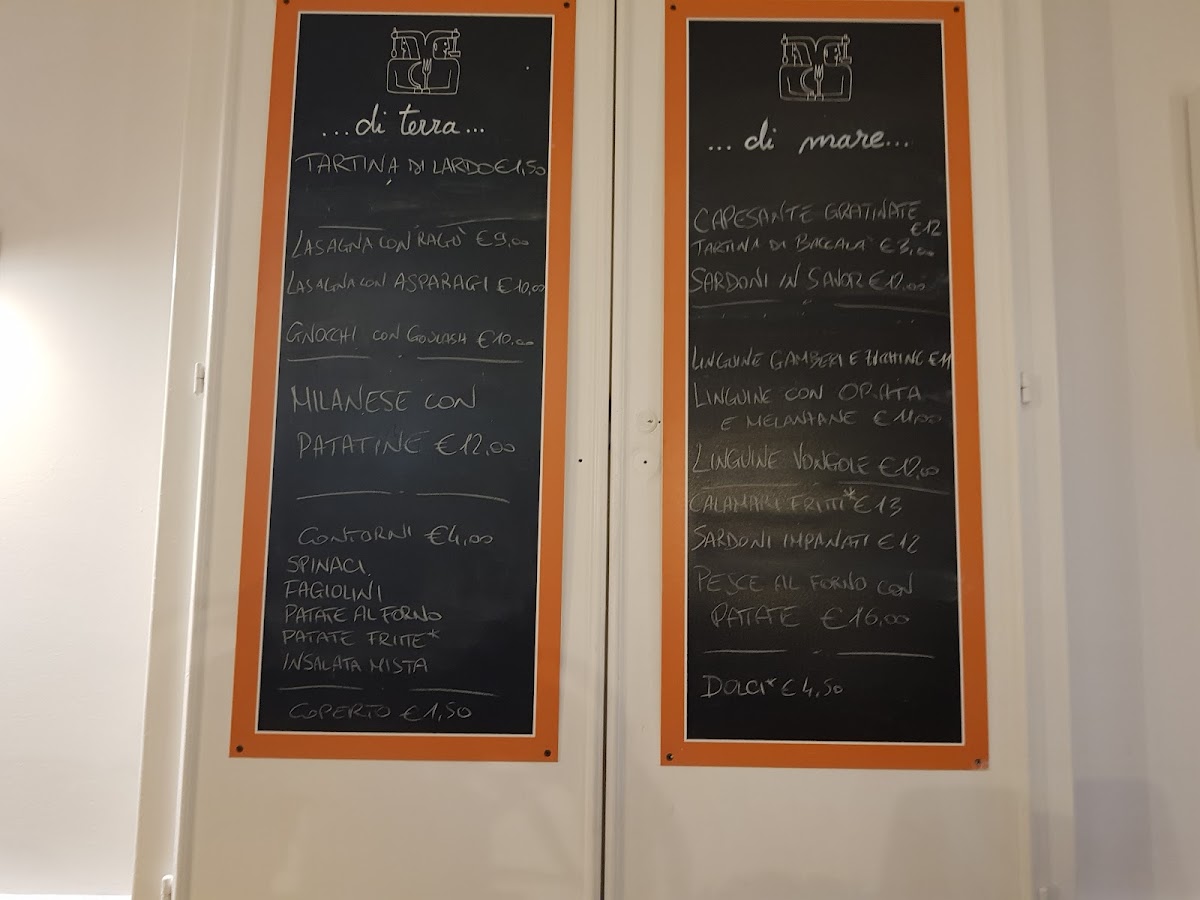 ...di terra...
TARTINA DI LARDO €1,50
LASAGNA CON RAGU' €9,00
LASAGNA CON ASPARAGI €10,00
GNOCCHI CON GOULASH €10,00
MILANESE CON
PATATINE €12,00
CONTORNI €4,00
SPINACI
FAGIOLINI
PATATE AL FORNO
PATATE FRITTE*
INSALATA MISTA
COPERTO €1,50
...di mare...
CAPESANTE GRATINATE
€12
TARTINA DI BACCALA' €3,00
SARDONI IN SAVOR
LINGUINE GAMBERI E ZUCCHINE €11
LINGUINE CON ORATA
E MELANZANE €11,00
LINGUINE VONGOLE
CALAMARI FRITTI* €13
SARDONI IMPANATI €12
PESCE AL FORNO CON
PATATE €16,00
DOLCI* €4,50